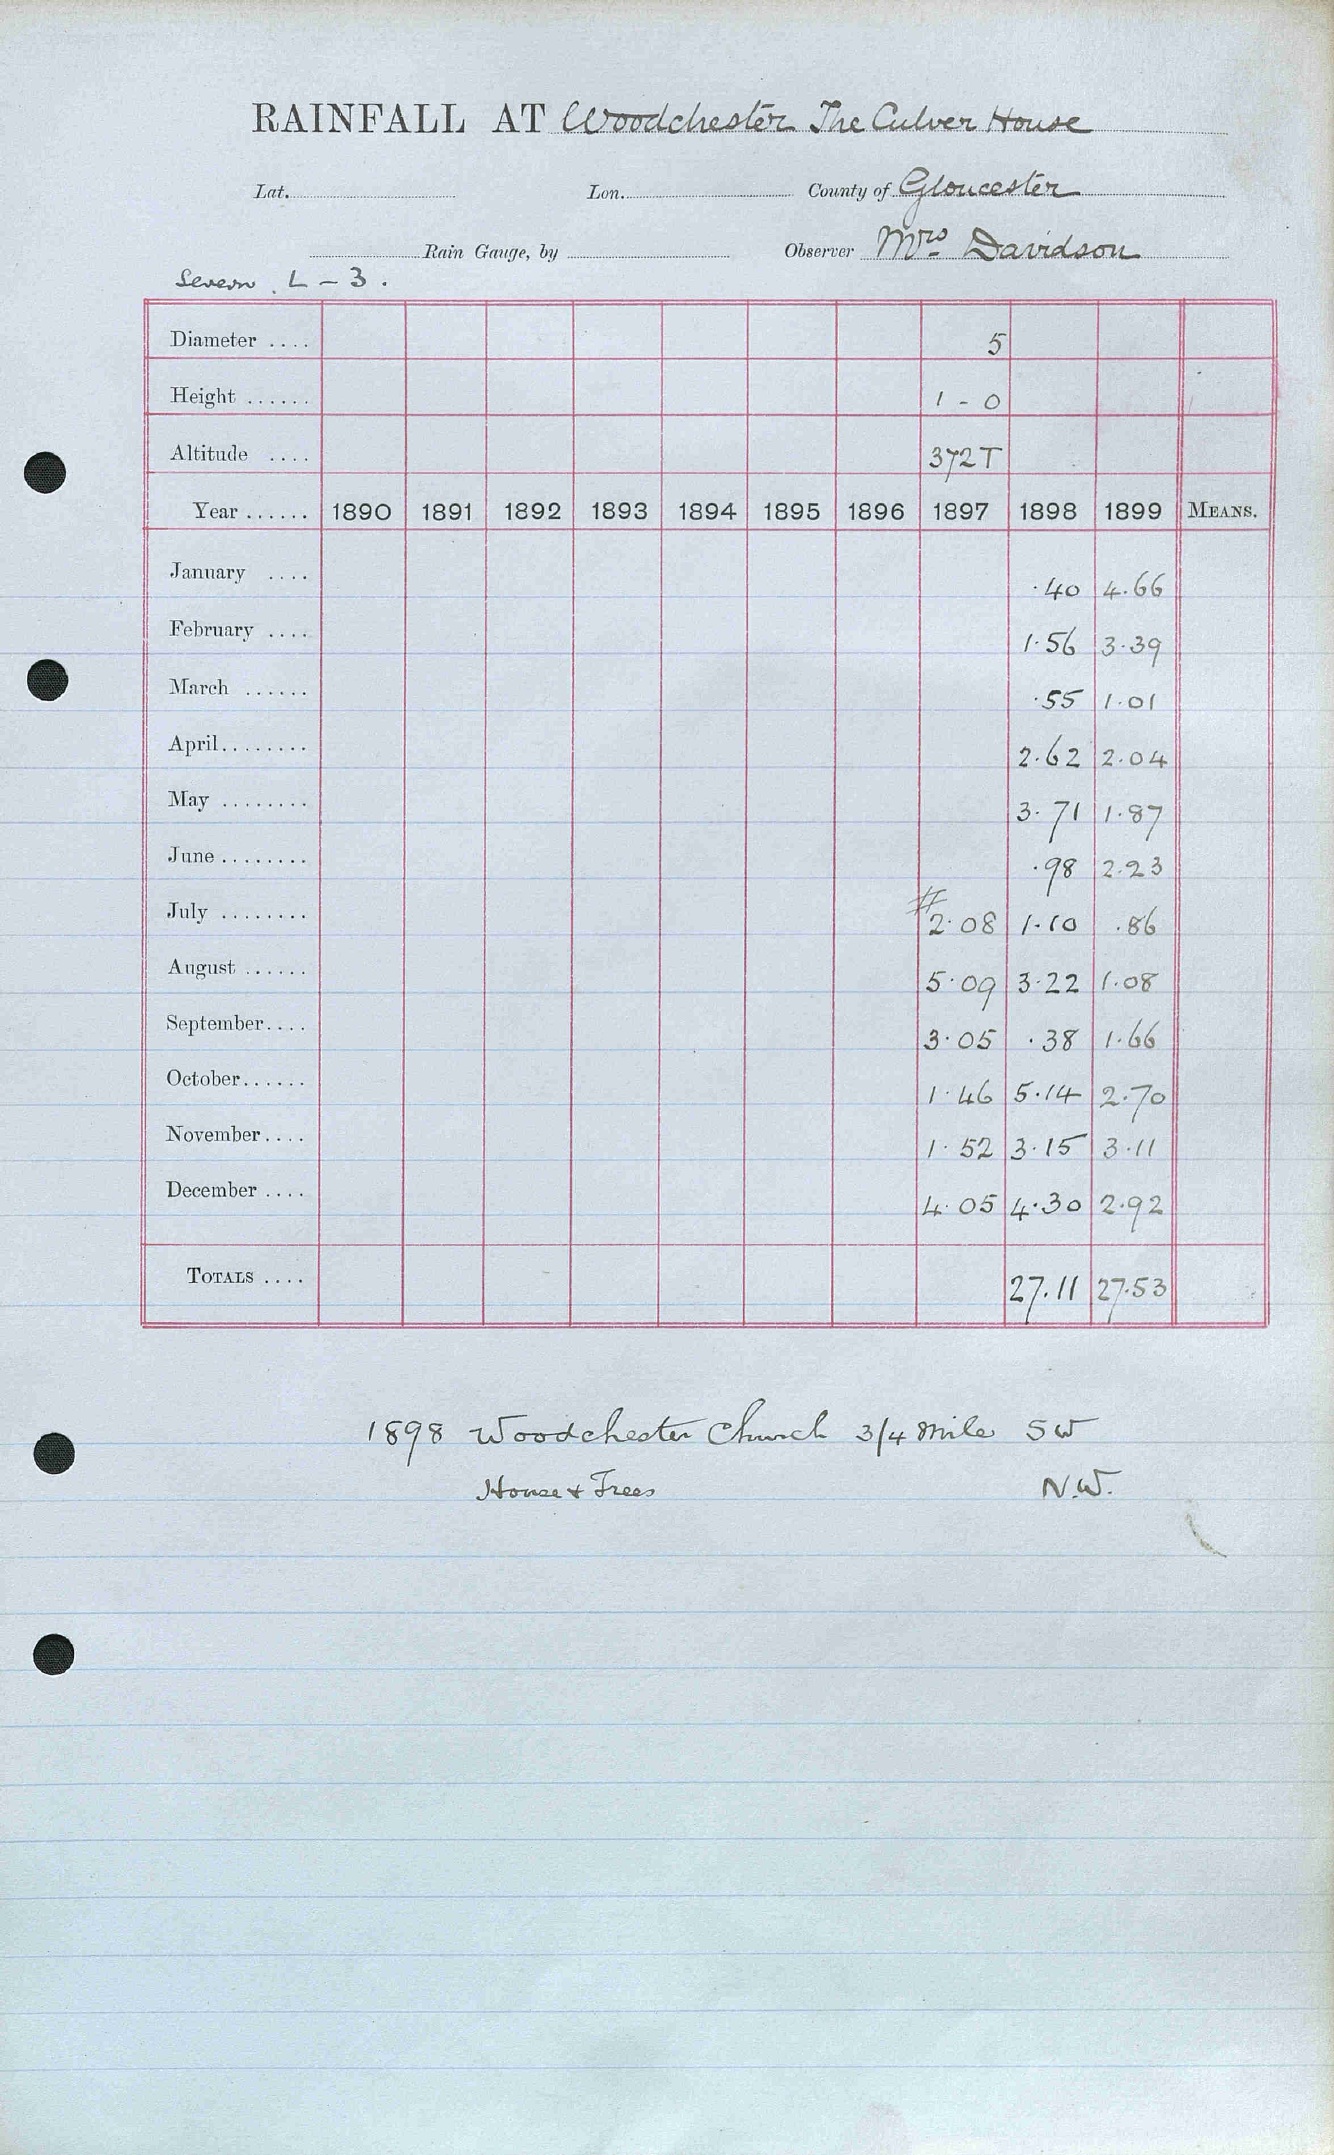 RAINFALL AT Woodchester The Culver House
Lat. Lon. County of Gloucester
Rain Gauge, by Observer Mrs Davidson
Severn. L - 3.
Diameter .... 5
Height ...... 1 - 0
Altitude .... 372 T
Year ...... 1890 1891 1892 1893 1894 1895 1896 1897 1898 1899 MEANS.
January .... ·40 4.66
February .... 1·56 3·39
March ...... ·55 1·01
April........ 2·62 2·04
May ........ 3·71 1·87
June ........ ·98 2·23
July ........ # 2·08 1·10 ·86
August ...... 5·09 3·22 1·08
September.... 3·05 ·38 1·66
October...... 1·46 5·14 2·70
November.... 1·52 3·15 3·11
December .... 4·05 4·30 2·92
TOTALS .... 27.11 27·53
1898 Woodchester Church 3/4 mile SW
House + Trees N.W.